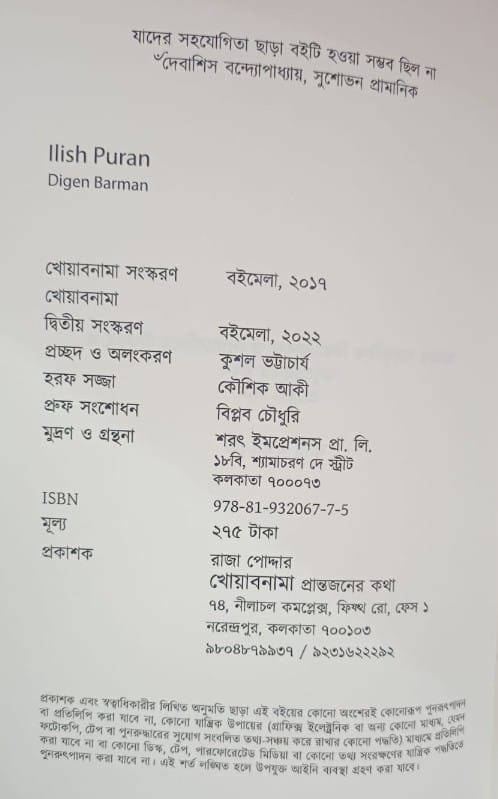 যাদের সহযোগিতা ছাড়া বইটি হওয়া সম্ভব ছিল না
ঁদেবাশিস বন্দ্যোপাধ্যায়, সুশোভন প্রামানিক
Ilish Puran
Digen Barman
খোয়াবনামা সংস্করণ বইমেলা, ২০১৭
খোয়াবনামা
দ্বিতীয় সংস্করণ বইমেলা, ২০২২
প্রচ্ছদ ও অলংকরণ কুশল ভট্টাচার্য
হরফ সজ্জা কৌশিক আকী
প্রুফ সংশোধন বিপ্লব চৌধুরি
মুদ্রণ ও গ্রন্থনা শরৎ ইমপ্রেশনস প্রা. লি.
১৮বি, শ্যামাচরণ দে স্ট্রীট
কলকাতা ৭০০০৭৩
ISBN 978-81-932067-7-5
মূল্য ২৭৫ টাকা
প্রকাশক রাজা পোদ্দার
খোয়াবনামা প্রান্তজনের কথা
৭৪, নীলাচল কমপ্লেক্স, ফিফথ রো, ফেস ১
নরেন্দ্রপুর, কলকাতা ৭০০১০৩
৯৮০৪৮৭৯৯৩৭ / ৯২৩১৬২২২৯২
প্রকাশক এবং স্বত্বাধিকারীর লিখিত অনুমতি ছাড়া এই বইয়ের কোনো অংশেরই কোনোরূপ পুনরুৎপাদন
বা প্রতিলিপি করা যাবে না, কোনো যান্ত্রিক উপায়ের (গ্রাফিক্স ইলেক্ট্রনিক বা অন্য কোনো মাধ্যম, যেমন
ফটোকপি, টেপ বা পুনরুদ্ধারের সুযোগ সংবলিত তথ্য-সঞ্চয় করে রাখার কোনো পদ্ধতি) মাধ্যমে প্রতিলিপি
করা যাবে না বা কোনো ডিস্ক, টেপ, পারফোরেটেড মিডিয়া বা কোনো তথ্য সংরক্ষণের যান্ত্রিক পদ্ধতিতে
পুনরুৎপাদন করা যাবে না। এই শর্ত লঙ্ঘিত হলে উপযুক্ত আইনি ব্যবস্থা গ্রহণ করা যাবে।